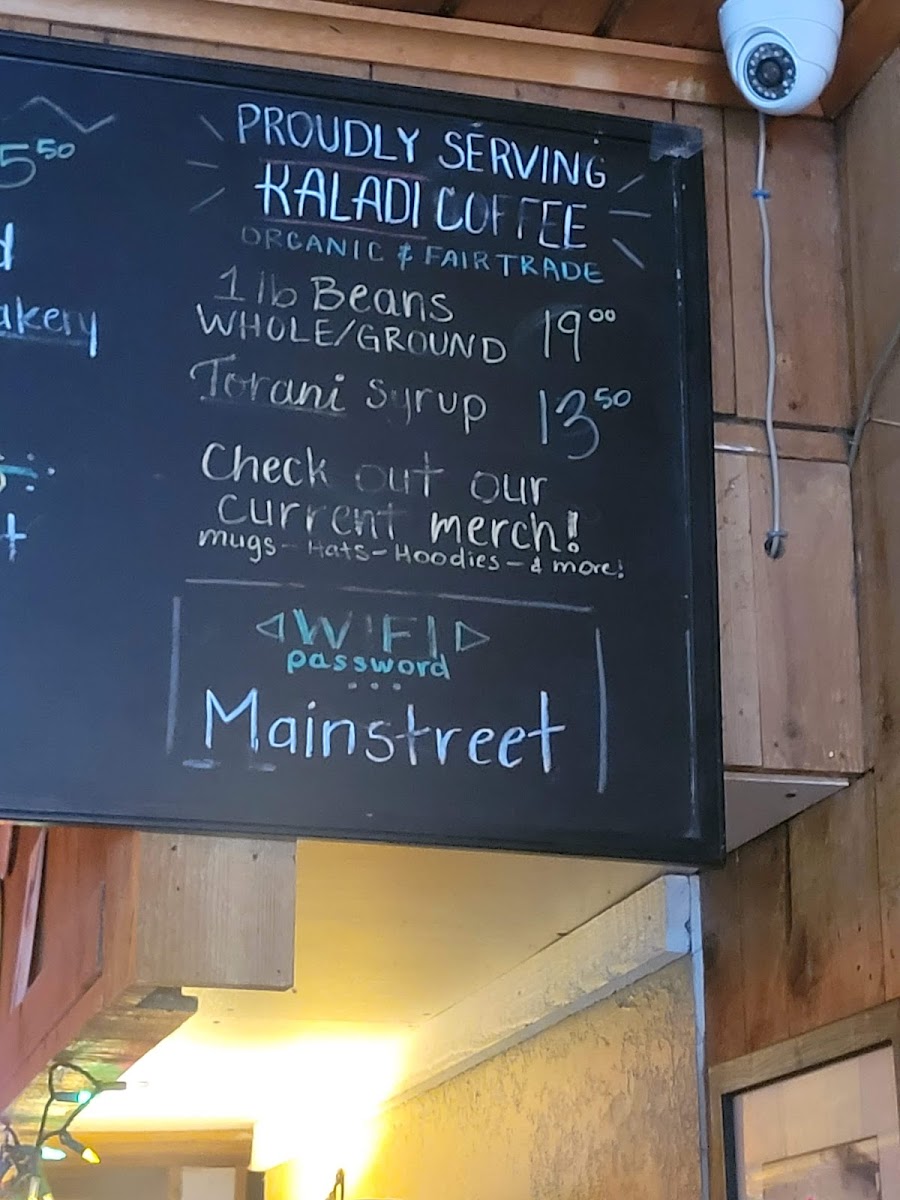 5.50
PROUDLY SERVING
KALADI COFFEE
ORGANIC & FAIR TRADE
1 lb Beans
WHOLE/GROUND 19.00
Torani Syrup 13.50
Check out our
current merch!
mugs - Hats - Hoodies - & more!
WIFI
password
...
Mainstreet